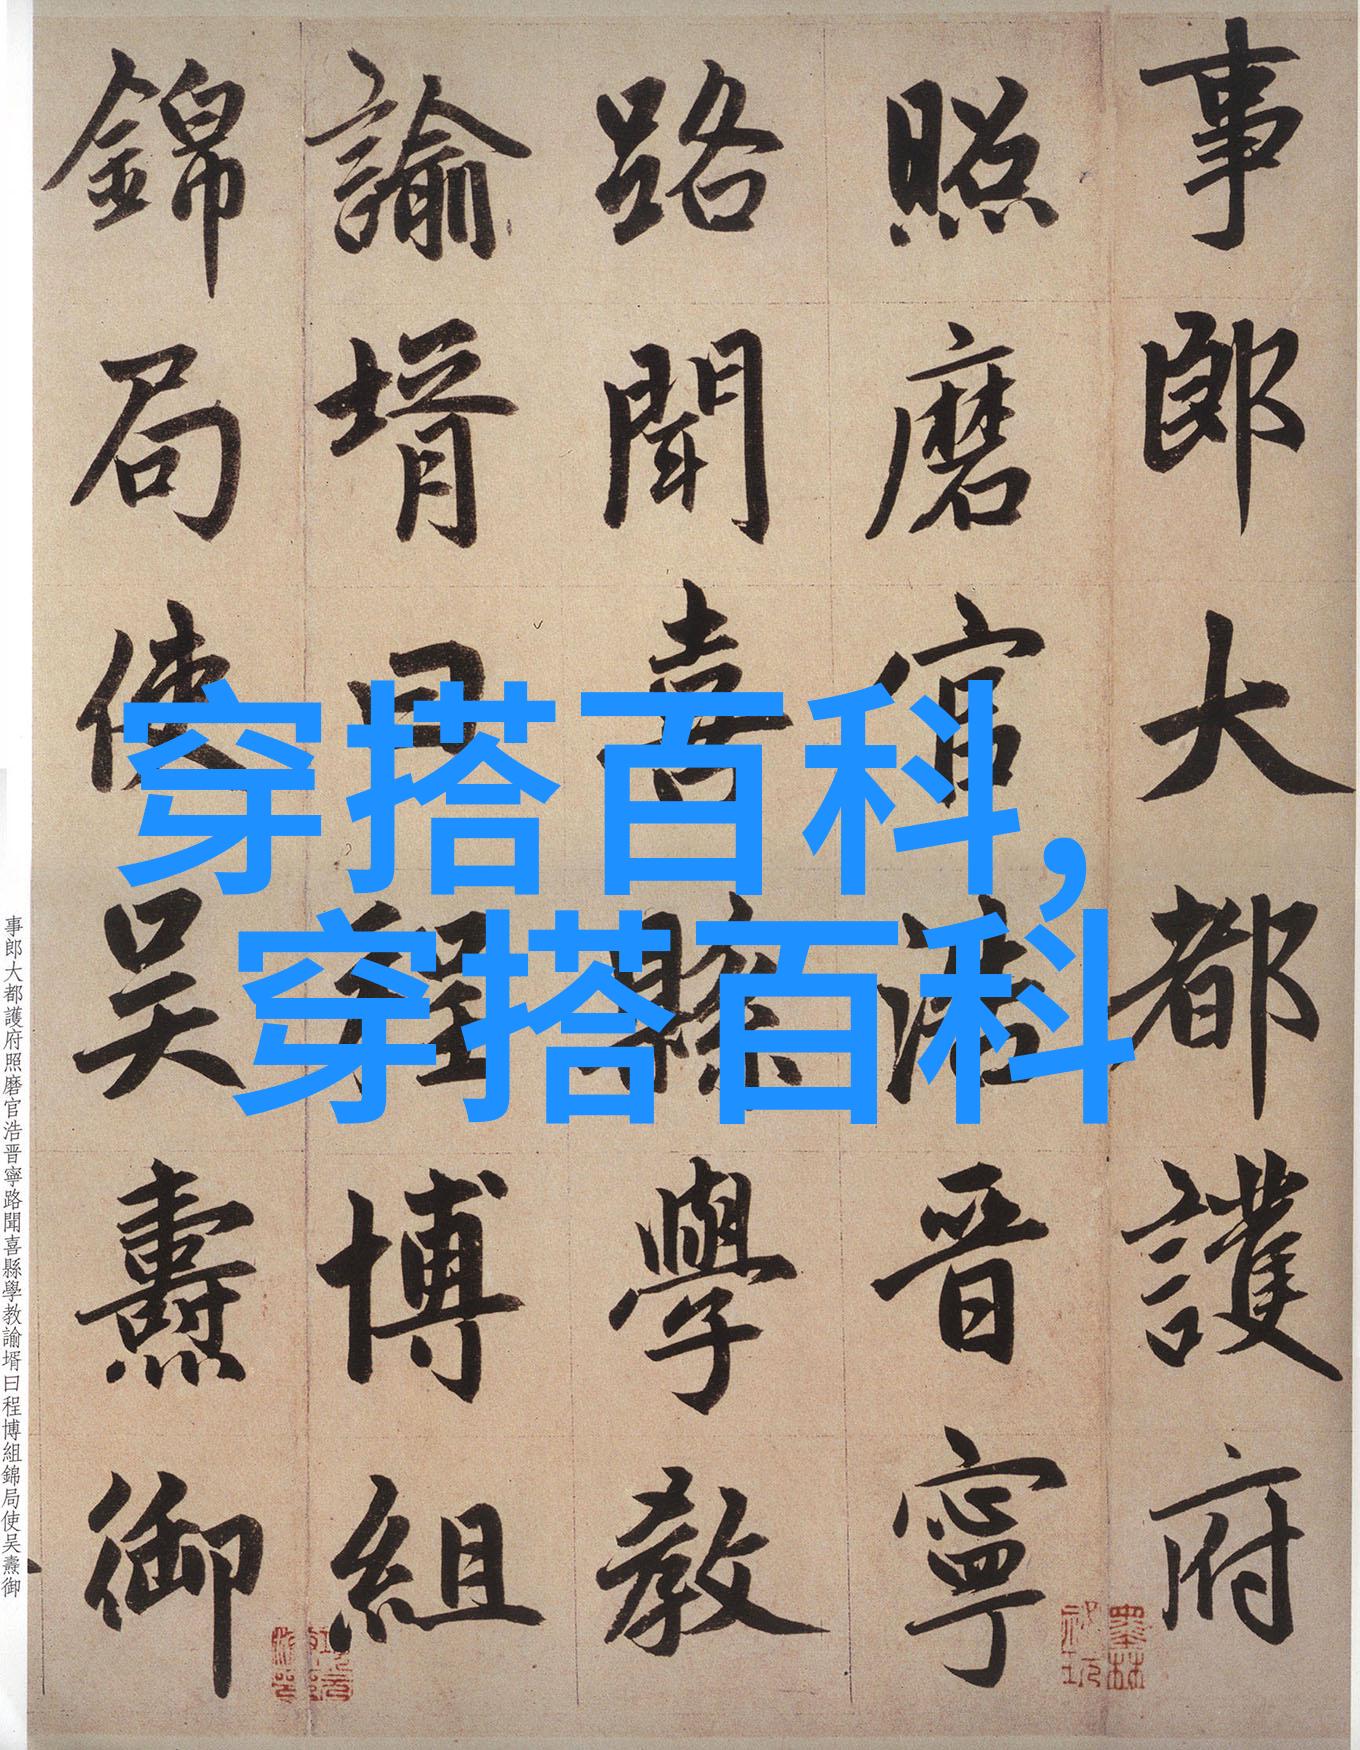 事郎大都護府
照磨官浩晋寧
路聞喜縣學教
諭壻曰程博組
錦局使吴燾御
穿搭百科，
穿搭百科
事郎大都護府照磨官浩晋寧路聞喜縣學教諭壻曰程博組錦局使吴燾御